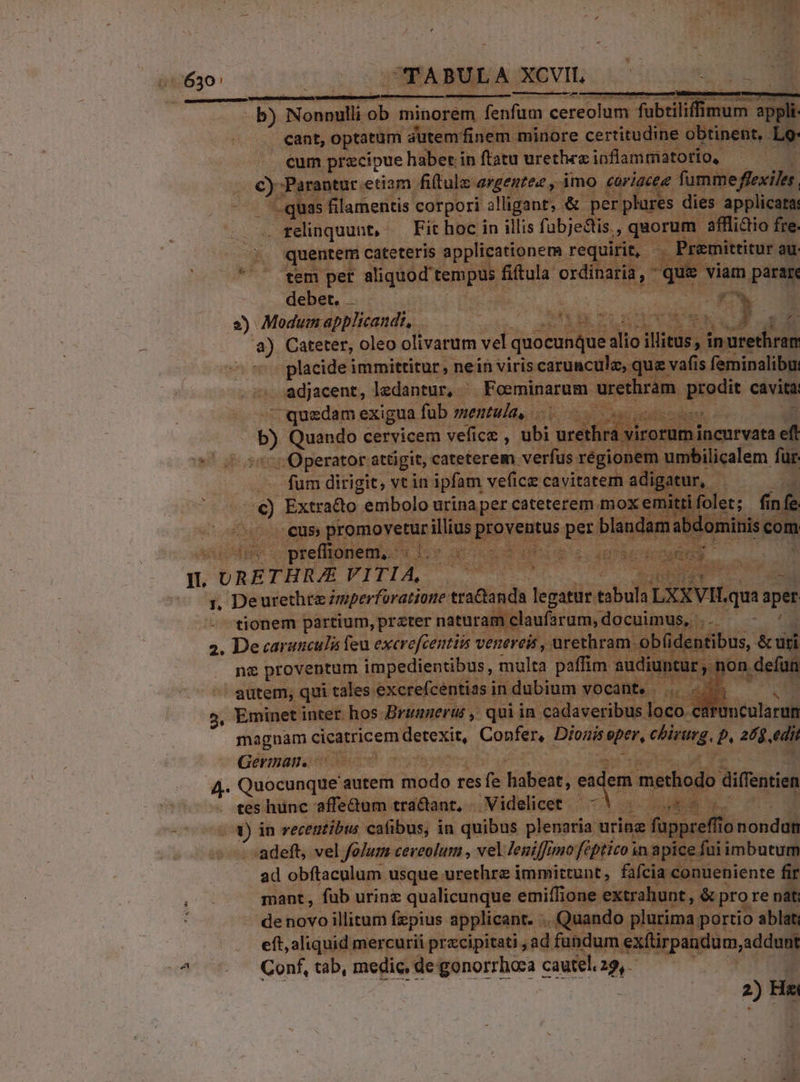 630 TABULA XCVII.
b) Nonnulli ob minorem ſenſum cereolum ſubtiliſſimum appli-
cant, optatum autem finem minore certitudine obtinent. Lo-
cum præcipue habet in ſtatu urethræ inflammatorio.
c) Parantur etiam fiſtulæ argenteæ, imo coriaceæ ſumme flexiles,
quas filamentis corpori alligant, & per plures dies applicatas
relinquunt. Fit hoc in illis ſubjectis, quorum afflictio fre-
quentem cateteris applicationem requirit. Præmittitur au-
tem per aliquod tempus fiſtula ordinaria, quæ viam parare
debet.
2) Modum applicandi.
a) Cateter, oleo olivarum vel quocunque alio illitus, in urethram
placide immittitur, ne in viris carunculæ, quæ vaſis ſeminalibus
adjacent, lædantur. Fœminarum urethram prodit cavitas
quædam exigua ſub mentula.
b) Quando cervicem veſicæ, ubi urethra virorum incurvata eſt
Operator attigit, cateterem verſus regionem umbilicalem ſur-
ſum dirigit, vt in ipſam veſicæ cavitatem adigatur.
c) Extracto embolo urina per cateterem mox emitti ſolet; ſin ſe-
cus, promovetur illius proventus per blandam abdominis com-
preſſionem.
II. URETHRÆ VITIA.
1. De urethræ imperforatione tractanda legatur tabula LXXVII. qua aper-
tionem partium, præter naturam clauſarum, docuimus.
2. De carunculis ſeu excreſcentiis venereis, urethram obſidentibus, & uri-
næ proventum impedientibus, multa paſſim audiuntur, non deſunt
autem, qui tales excreſcentias in dubium vocant.
3. Eminet inter hos Brunnerus, qui in cadaveribus loco caruncularum
magnam cicatricem detexit. Confer. Dionis oper. chirurg. p. 268. edit.
German.
4. Quocunque autem modo res ſe habeat, eadem methodo diſſentien-
tes hunc affectum tractant. Videlicet
1) in recentibus caſibus, in quibus plenaria urinæ ſuppreſſio nondum
adeſt, vel ſolum cereolum, vel leniſſimo ſeptico in apice ſui imbutum
ad obſtaculum usque urethræ immittunt, faſcia conueniente fir-
mant, ſub urinæ qualicunque emiſſione extrahunt, & pro re nata
de novo illitum ſæpius applicant. Quando plurima portio ablata
eſt, aliquid mercurii præcipitati, ad fundum exſtirpandum, addunt
Conf. tab. medic. de gonorrhœa cautel. 29.
2) Hæ